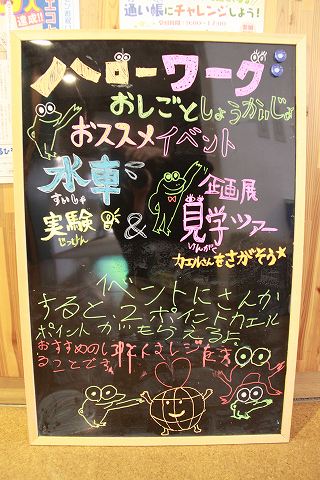 通い帳にチャレンジしよう!
ハローワーク
おしごとしょうかいじょ
おススメイベント
水車
すいしゃ
実験
じっけん
&
企画展
見学ツアー
けんがく
カエルさんをさがそう★
イベントにさんか
すると、2ポイントカエル
ポイントがもらえる
おすすめのし
ることです。